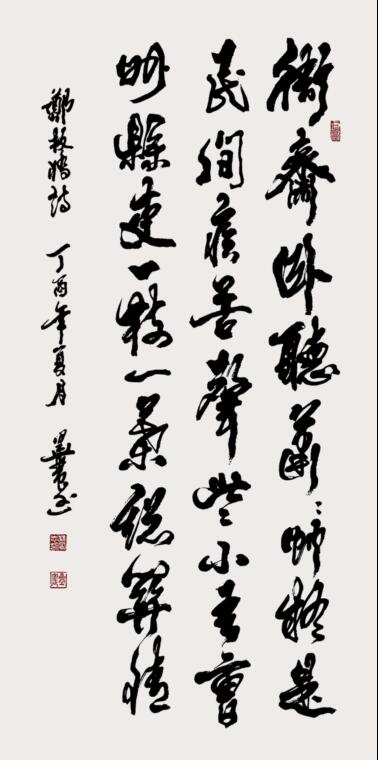 衙齋卧聽蕭〻竹疑是
民間疾苦聲些小吾曹
州縣吏一枝一葉總關情
鄭板橋詩 丁酉年夏月